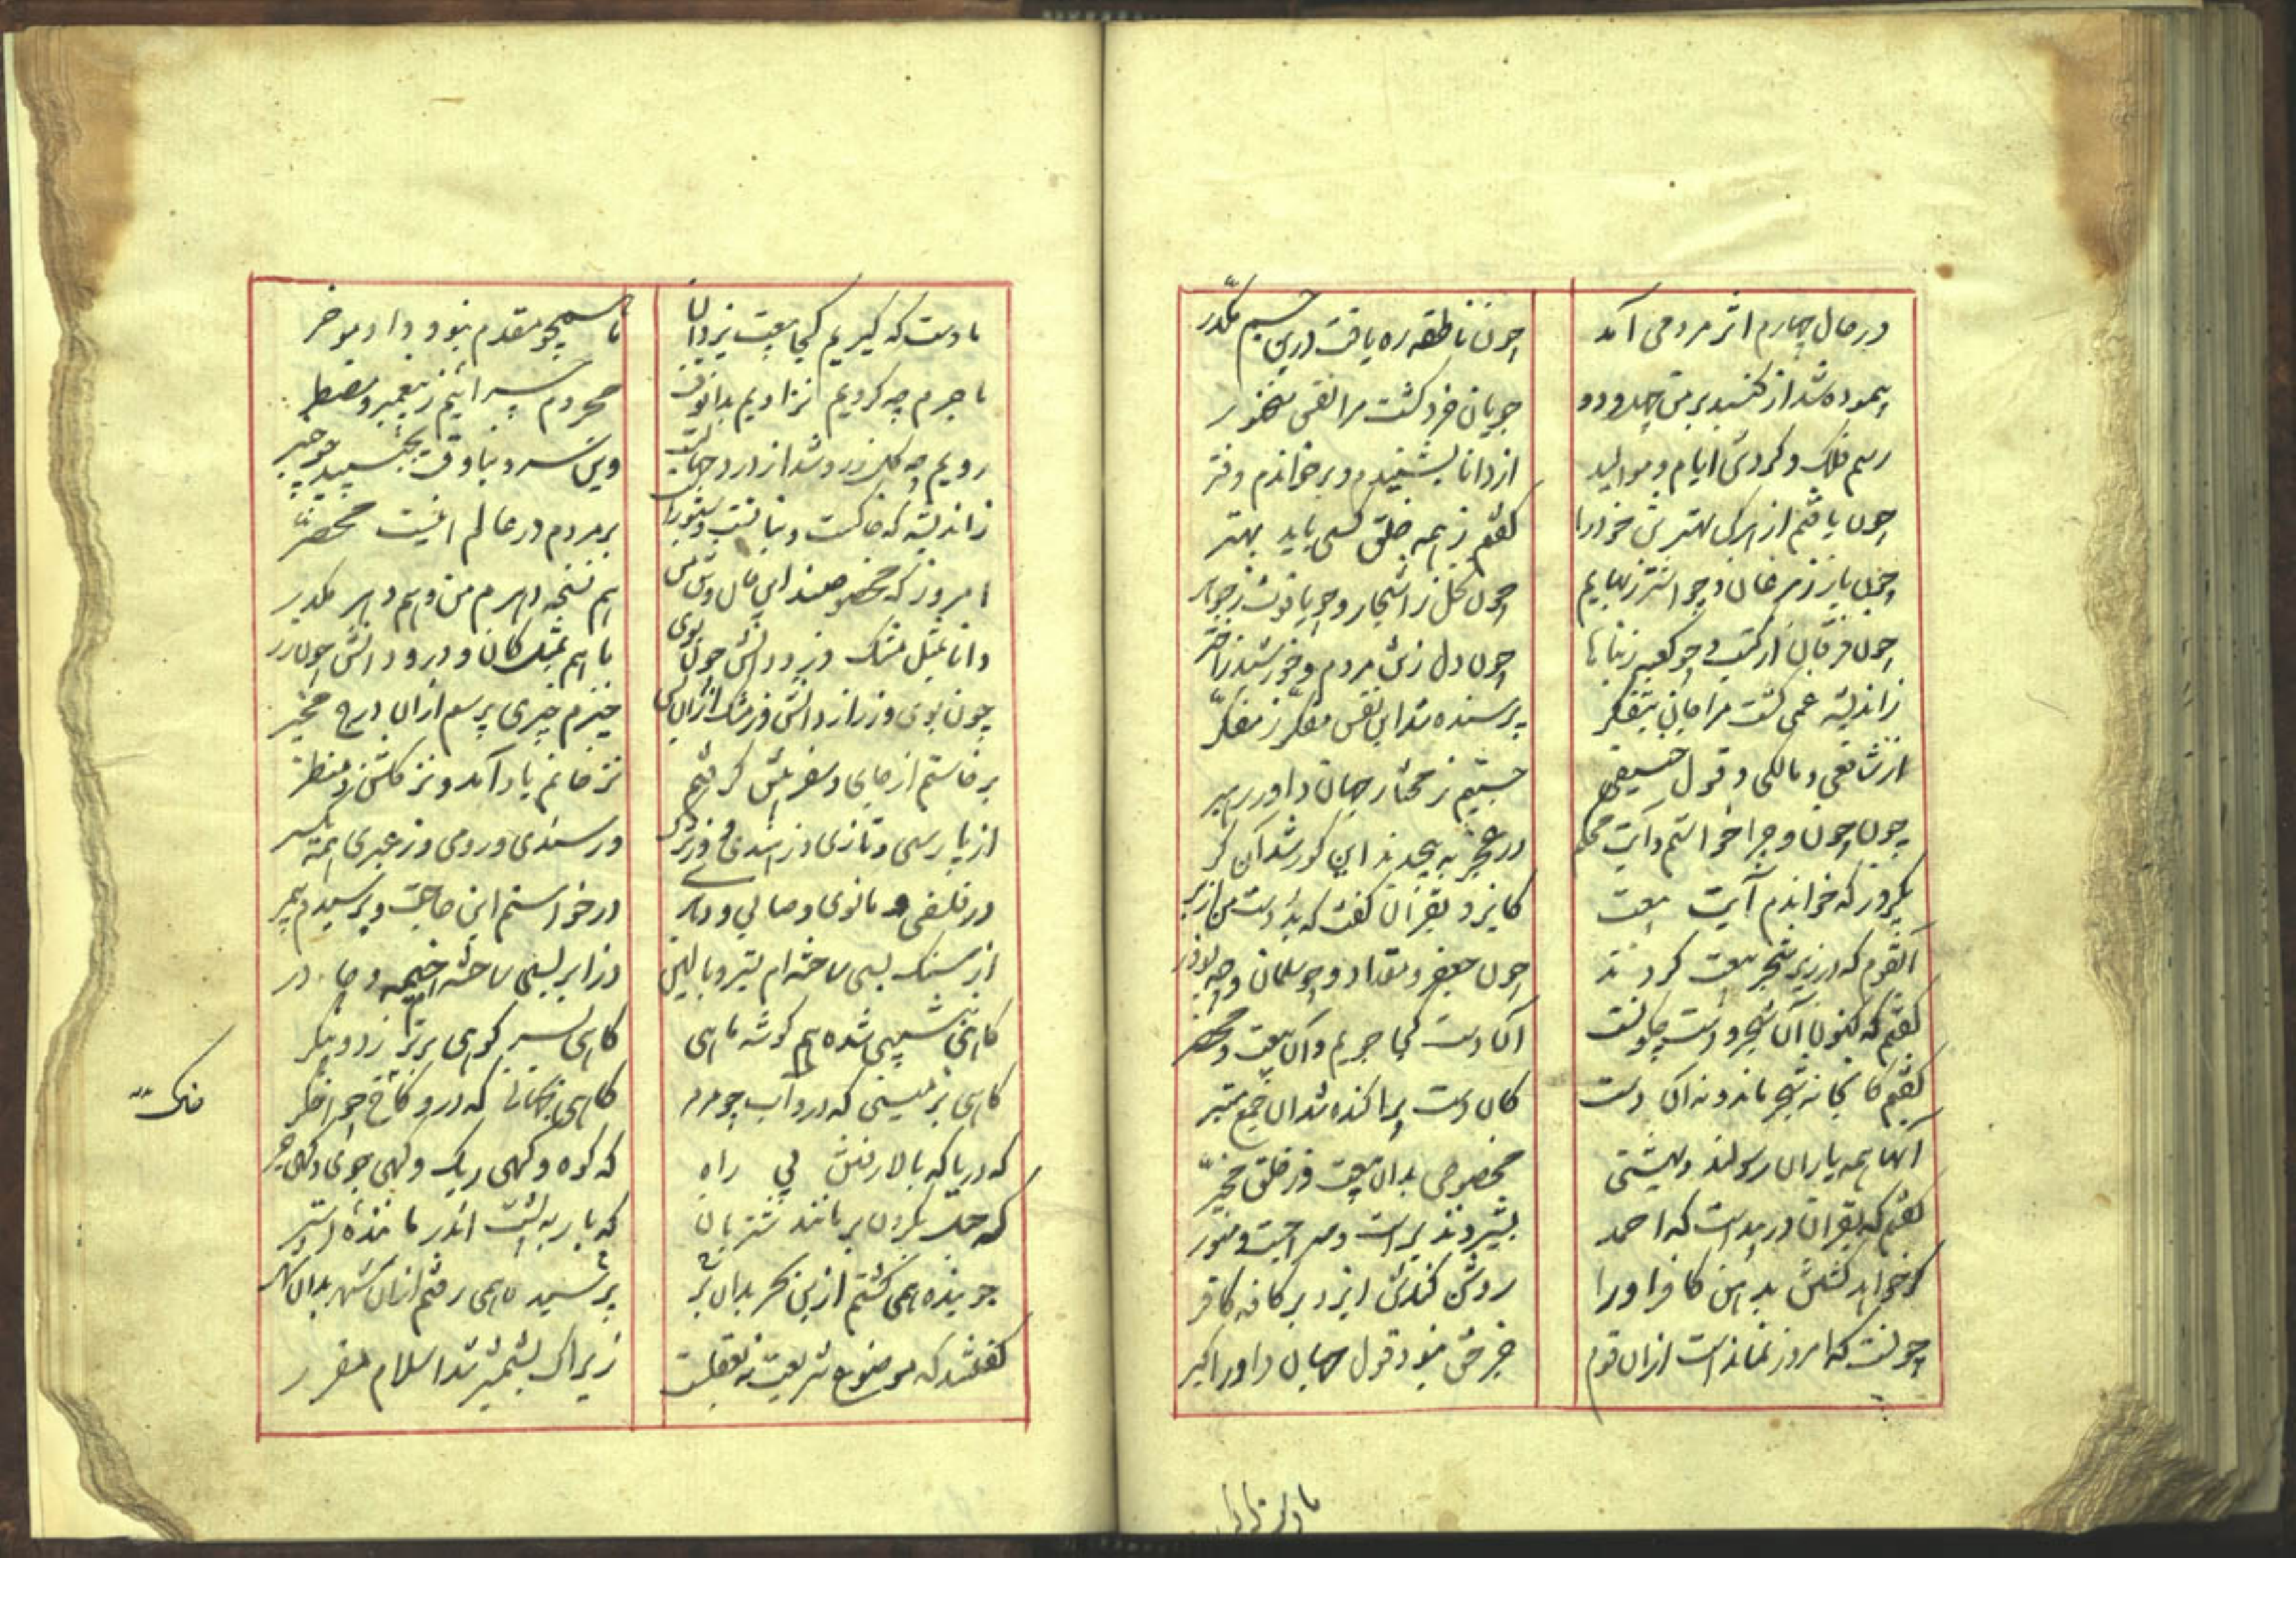 در حال چهارم اثر مردمی آمد چون ناطقه ره یافت درین جسم مکدّر
پیموده شد از گنبد بر من چهل و دو جویان خرد گشت مرا نفس سخنور
رسم فلک و گردش ایام و موالید از دانا بشنیدم و برخواندم دفتر
چون یافتم از هرکس بهتر تن خود را گفتم ز همه خلق کسی باید بهتر
چون باز ز مرغان و چو اشتر ز بهایم چون نخل ز اشجار و چو یاقوت ز جوهر
چون فرقان از کتب و چو کعبه ز بناها چون دل ز تن مردم و خورشید ز اختر
ز اندیشه غمی گشت مرا جان بتفکر پرسنده شد این نفس مفکّر ز مفکّر
از شافعی و مالکی و قول حنیفی جستیم ز مختار جهان داور رهبر
چون چون و چرا خواستم و آیت محکم در عجز به پیچیدند این کور شد آن کر
یکروز که خواندم آیت بیعت کایزد بقرآن گفت که بد دست من از بر
آنقوم که در زیر شجر بیعت کردند چون جعفر و مقداد و چو سلمان و چو بوذر
گفتم که کنون آن شجر و دست چگونست آن دست کجا جویم و آن بیعت و محضر
گفتم کانجا نه شجر ماند و نه آن دست کان دست پراکنده شد آن جمع مبتر
آنها همه یاران رسولند و بهشتی مخصوص بدان بیعت وز خلق مخیّر
گفتم که بقرآن در پیداست که احمد بشیر و نذیر است و سراجست و منور
گر خواهد کشتن بدهن کافر او را روشن کندش ایزد بر کافه کافر
چونست که امروز نماندست از آن قوم جز حق نبود قول جهان داور اکبر
ما دست که گیریم کجا بیعت یزدان تا همچو مقدم نبود داد موخر
ما جرم چه کردیم نزادیم بدانوقت محروم چرائیم ز پیغمبر و مضطر
رویم چو گل زرد شد از درد جهالت وین سرو بناوقت بخمید چو چنبر
ز اندیشه که خاکست و نباتست و ستورست بر مردم در عالم اینست محصر
امروز که مخصوصند این جان و تن من هم نسخه دهرم من و هم دهر مکدر
دانا بمثل مشک و زو دانش چون بوی یا هم بمثل کان و درو دانش چون زر
چون بوی و زر از دانش وز مشک از آن پس خیزم خبری پرسم از آن درج مخبر
برخاستم از جای و سفر پیش گرفتم نز خانم یاد آمد و نز گلشن و منظر
از پارسی و تازی وز هندی وز ترک وز سندی و رومی وز عبری همه یکسر
وز فلسفی و مانوی و صابی و دهری درخواستم این حاجت و پرسیدم بیمر
از سنگ بسی ساخته‌ام بستر و بالین وز ابر بسی ساخته‌ام خیمه و چادر
گاهی بنشیبی شده هم گوشه ماهی گاهی بسر کوهی برتر ز دو پیکر
گاهی بزمینی که درو آب چو مرمر گاهی بجهانی که درو خاک چو اخگر
که دریا که بالا رفتن بی راه که کوه و گهی ریک و گهی جوی و گهی جر
که حبل بگردن بر مانند شتربان که بار به پشت اندر ماننده استر
جوینده همی گشتم ازین بحر بدان بر پرسنده همی رفتم ازین شهر بدان شهر
گفتند که موضوع شریعت نه بعقلست زیرا که بشمشیر شد اسلام مقرر